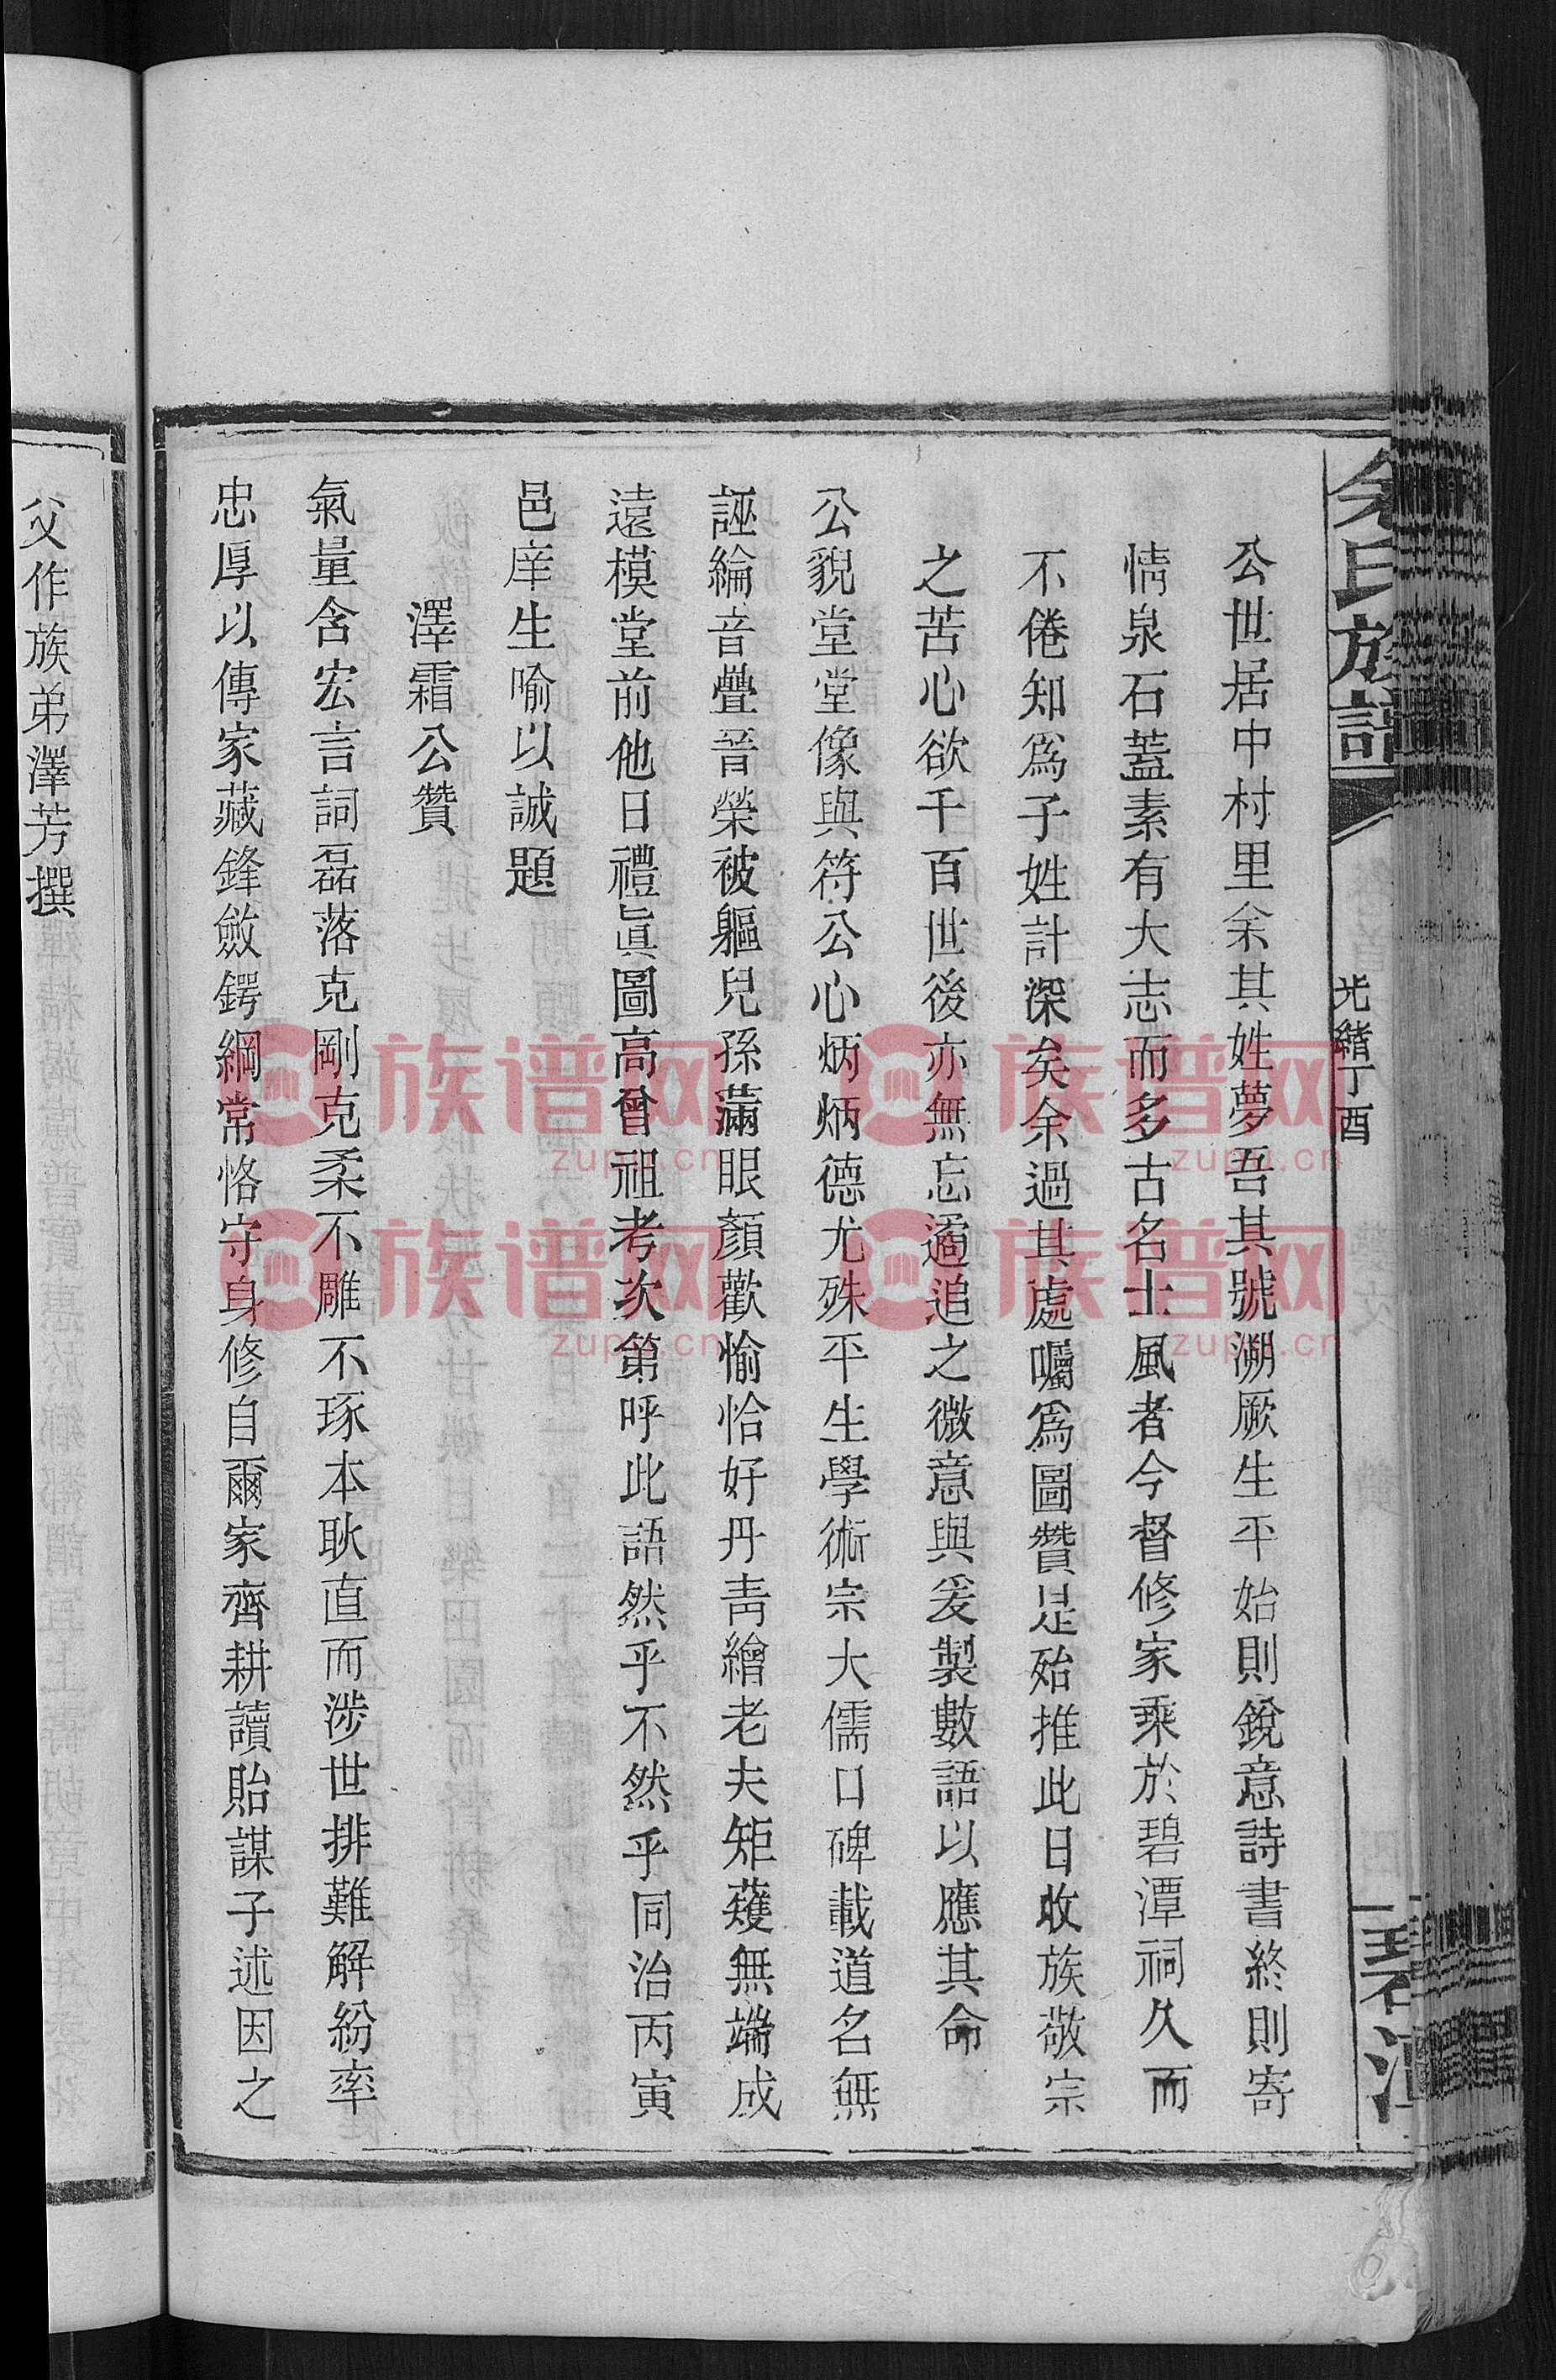 余氏族譜
光緖丁酉
碧潭
公世居中村里余其姓夢吾其號溯厥生平始則銳意詩書終則寄
情泉石蓋素有大志而多古名士風者今督修家乘於碧潭祠久而
不倦知爲子姓計深矣余過其處囑爲圖贊是殆推此日收族敬宗
之苦心欲千百世後亦無忘遹追之微意與爰製數語以應其命
公貌堂堂像與符公心炳炳德尤殊平生學術宗大儒口碑載道名無
誣綸音疊晉榮被軀兒孫滿眼顏歡愉恰好丹靑繪老夫矩薙無端成
遠模堂前他日禮眞圖高曾祖考次第呼此語然乎不然乎同治丙寅
邑庠生喻以誠題
澤霜公贊
氣量含宏言詞磊落克剛克柔不雕不琢本耿直而涉世排難解紛率
忠厚以傳家藏鋒斂鍔綱常恪守身修自爾家齊耕讀貽謀子述因之
父作族弟澤芳撰
族谱网
zupu.cn
族谱网
zupu.cn
族谱网
zupu.cn
族谱网
zupu.cn